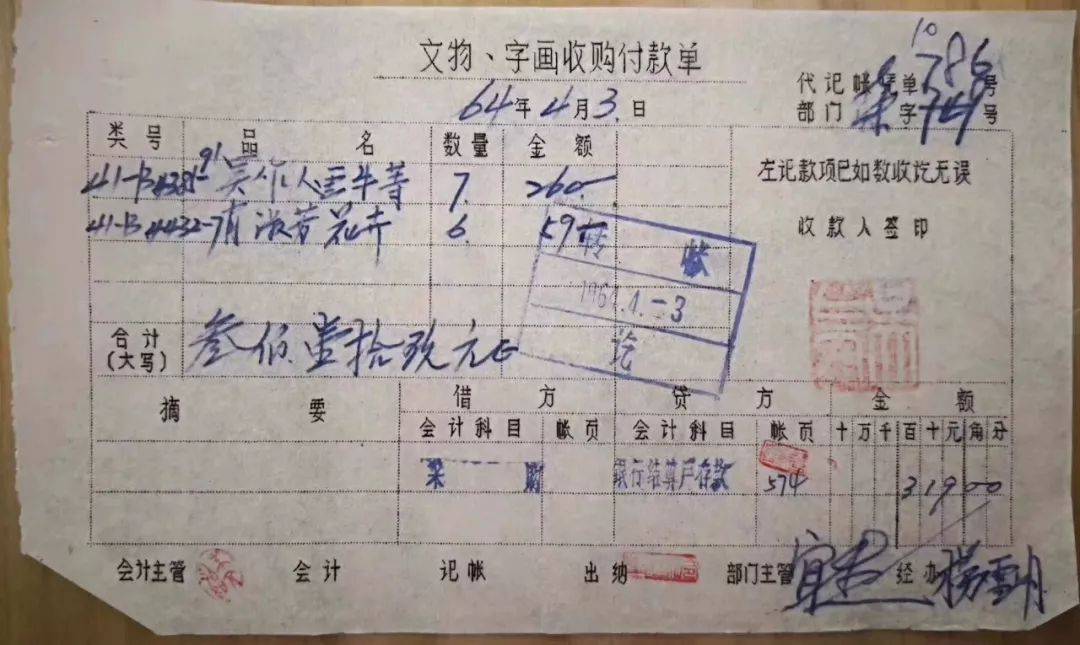 文物、字画收购付款单
代记帐凭单 10786号
64年4月3日
部门 采字749号
类号 品名 数量 金额
41-B4385-91 吴作人画牛等 7. 260-
左记款项已如数收讫无误
41-B4432-7 肖淑芳花卉 6. 59-
收款人签印
转帐
1964.4.-3
讫
合计(大写) 叁佰壹拾玖元正
摘要 借方 贷方 金额
会计科目 帐页 会计科目 帐页 十万千百十元角分
采购 银行结算户存款 574 31900
会计主管 会计 记帐 出纳 部门主管 经办